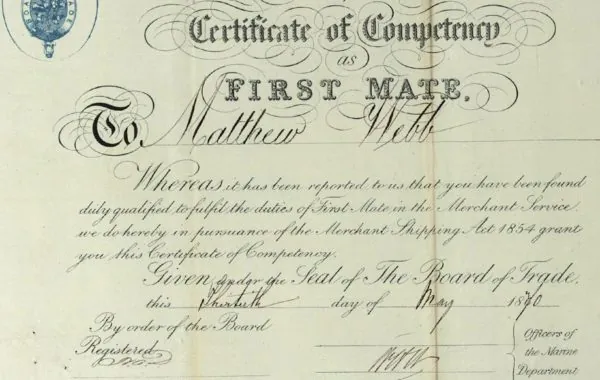 Certificate of Competency
as
FIRST MATE.
To Matthew Webb
Whereas it has been reported to us that you have been found
duly qualified to fulfil the duties of First Mate in the Merchant Service,
we do hereby in pursuance of the Merchant Shipping Act 1854 grant
you this Certificate of Competency.
Given under the Seal of The Board of Trade,
this Thirtieth day of May 1870
By order of the Board
Registered
Officers of
the Marine
Department